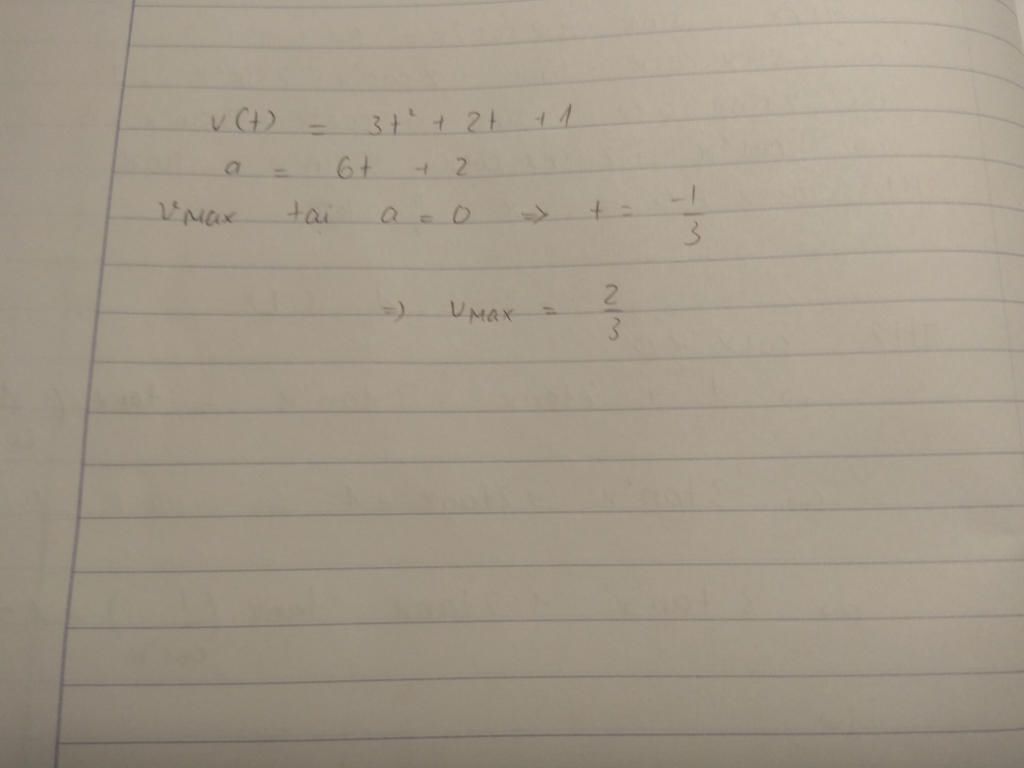 v(t) = 3t² + 2t + 1
a = 6t + 2
vMax tai a = 0 => t = -1/3
=> vMax = 2/3